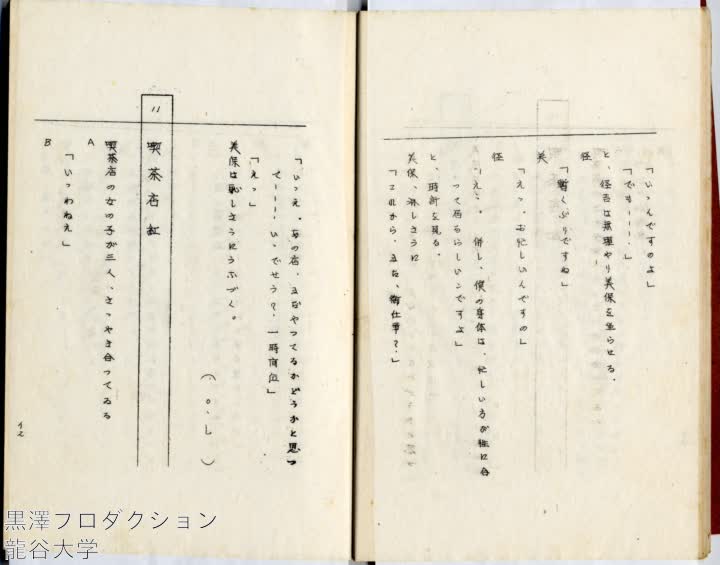 「いゝんですのよ」
「でも――。」
と、径吾は無理やり美保を坐らせる。
径
「暫くぶりですね」
美
「えゝ。お忙しいんですの」
径
「えゝ。併し、僕の身体は、忙しい方が性に合
って居るらしいンですよ」
と、時計を見る。
美保、淋しさうに
「これから、また、御仕事?」
「いゝえ。あの店、まだやつてるかどうかと思つ
て――、いゝでせう?、一時間位」
「えゝ」
美保は恥しさうにうなづく。
(O・L)
11
喫茶店 紅
喫茶店の女の子が三人、さゝやき合つてゐる
A
「いゝわねえ」
B
42
黒澤プロダクション
龍谷大学